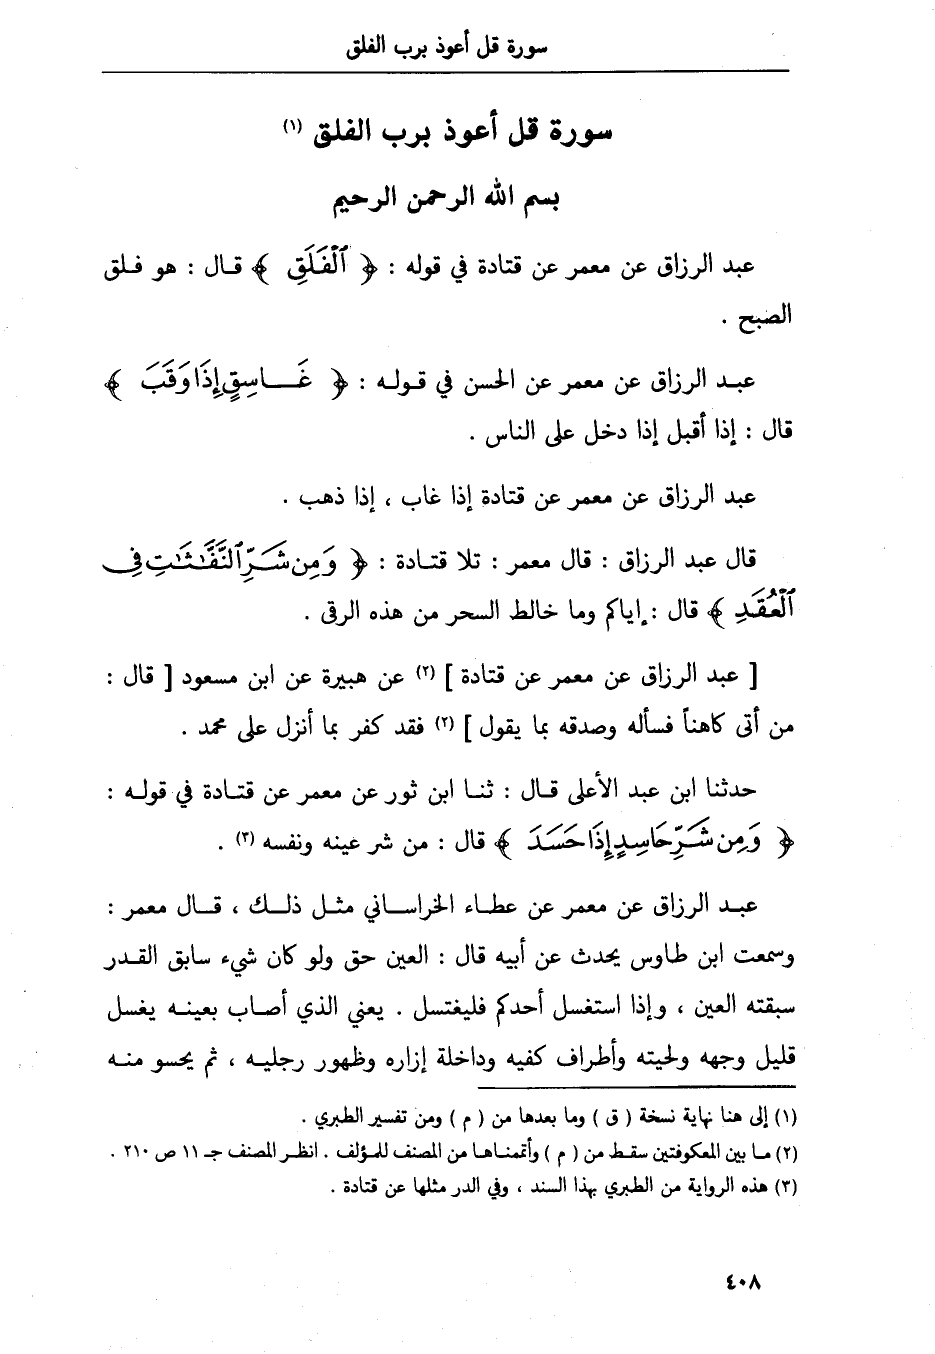 سورة قل أعوذ برب الفلق
سورة قل أعوذ برب الفلق (١)
بسم الله الرحمن الرحيم
عبد الرزاق عن معمر عن قتادة في قوله : ﴿ ٱلْفَلَقِ ﴾ قال : هو فلق
الصبح .
عبد الرزاق عن معمر عن الحسن في قوله : ﴿ غَاسِقٍ إِذَا وَقَبَ ﴾
قال : إذا أقبل إذا دخل على الناس .
عبد الرزاق عن معمر عن قتادة إذا غاب ، إذا ذهب .
قال عبد الرزاق : قال معمر : تلا قتادة : ﴿ وَمِن شَرِّ ٱلنَّفَّٰثَٰتِ فِى
ٱلْعُقَدِ ﴾ قال : إياكم وما خالط السحر من هذه الرقى .
[ عبد الرزاق عن معمر عن قتادة ] (٢) عن هبيرة عن ابن مسعود [ قال :
من أتى كاهناً فسأله وصدقه بما يقول ] (٢) فقد كفر بما أنزل على محمد .
حدثنا ابن عبد الأعلى قال : ثنا ابن ثور عن معمر عن قتادة في قوله :
﴿ وَمِن شَرِّ حَاسِدٍ إِذَا حَسَدَ ﴾ قال : من شر عينه ونفسه (٣) .
عبد الرزاق عن معمر عن عطاء الخراساني مثل ذلك ، قال معمر :
وسمعت ابن طاوس يحدث عن أبيه قال : العين حق ولو كان شيء سابق القدر
سبقته العين ، وإذا استغسل أحدكم فليغتسل . يعني الذي أصاب بعينه يغسل
قليل وجهه ولحيته وأطراف كفيه وداخلة إزاره وظهور رجليه ، ثم يحسو منه
(١) إلى هنا نهاية نسخة ( ق ) وما بعدها من ( م ) ومن تفسير الطبري .
(٢) ما بين المعكوفتين سقط من ( م ) وأتممناها من المصنف للمؤلف . انظر المصنف جـ ١١ ص ٢١٠ .
(٣) هذه الرواية من الطبري بهذا السند ، وفي الدر مثلها عن قتادة .
٤٠٨